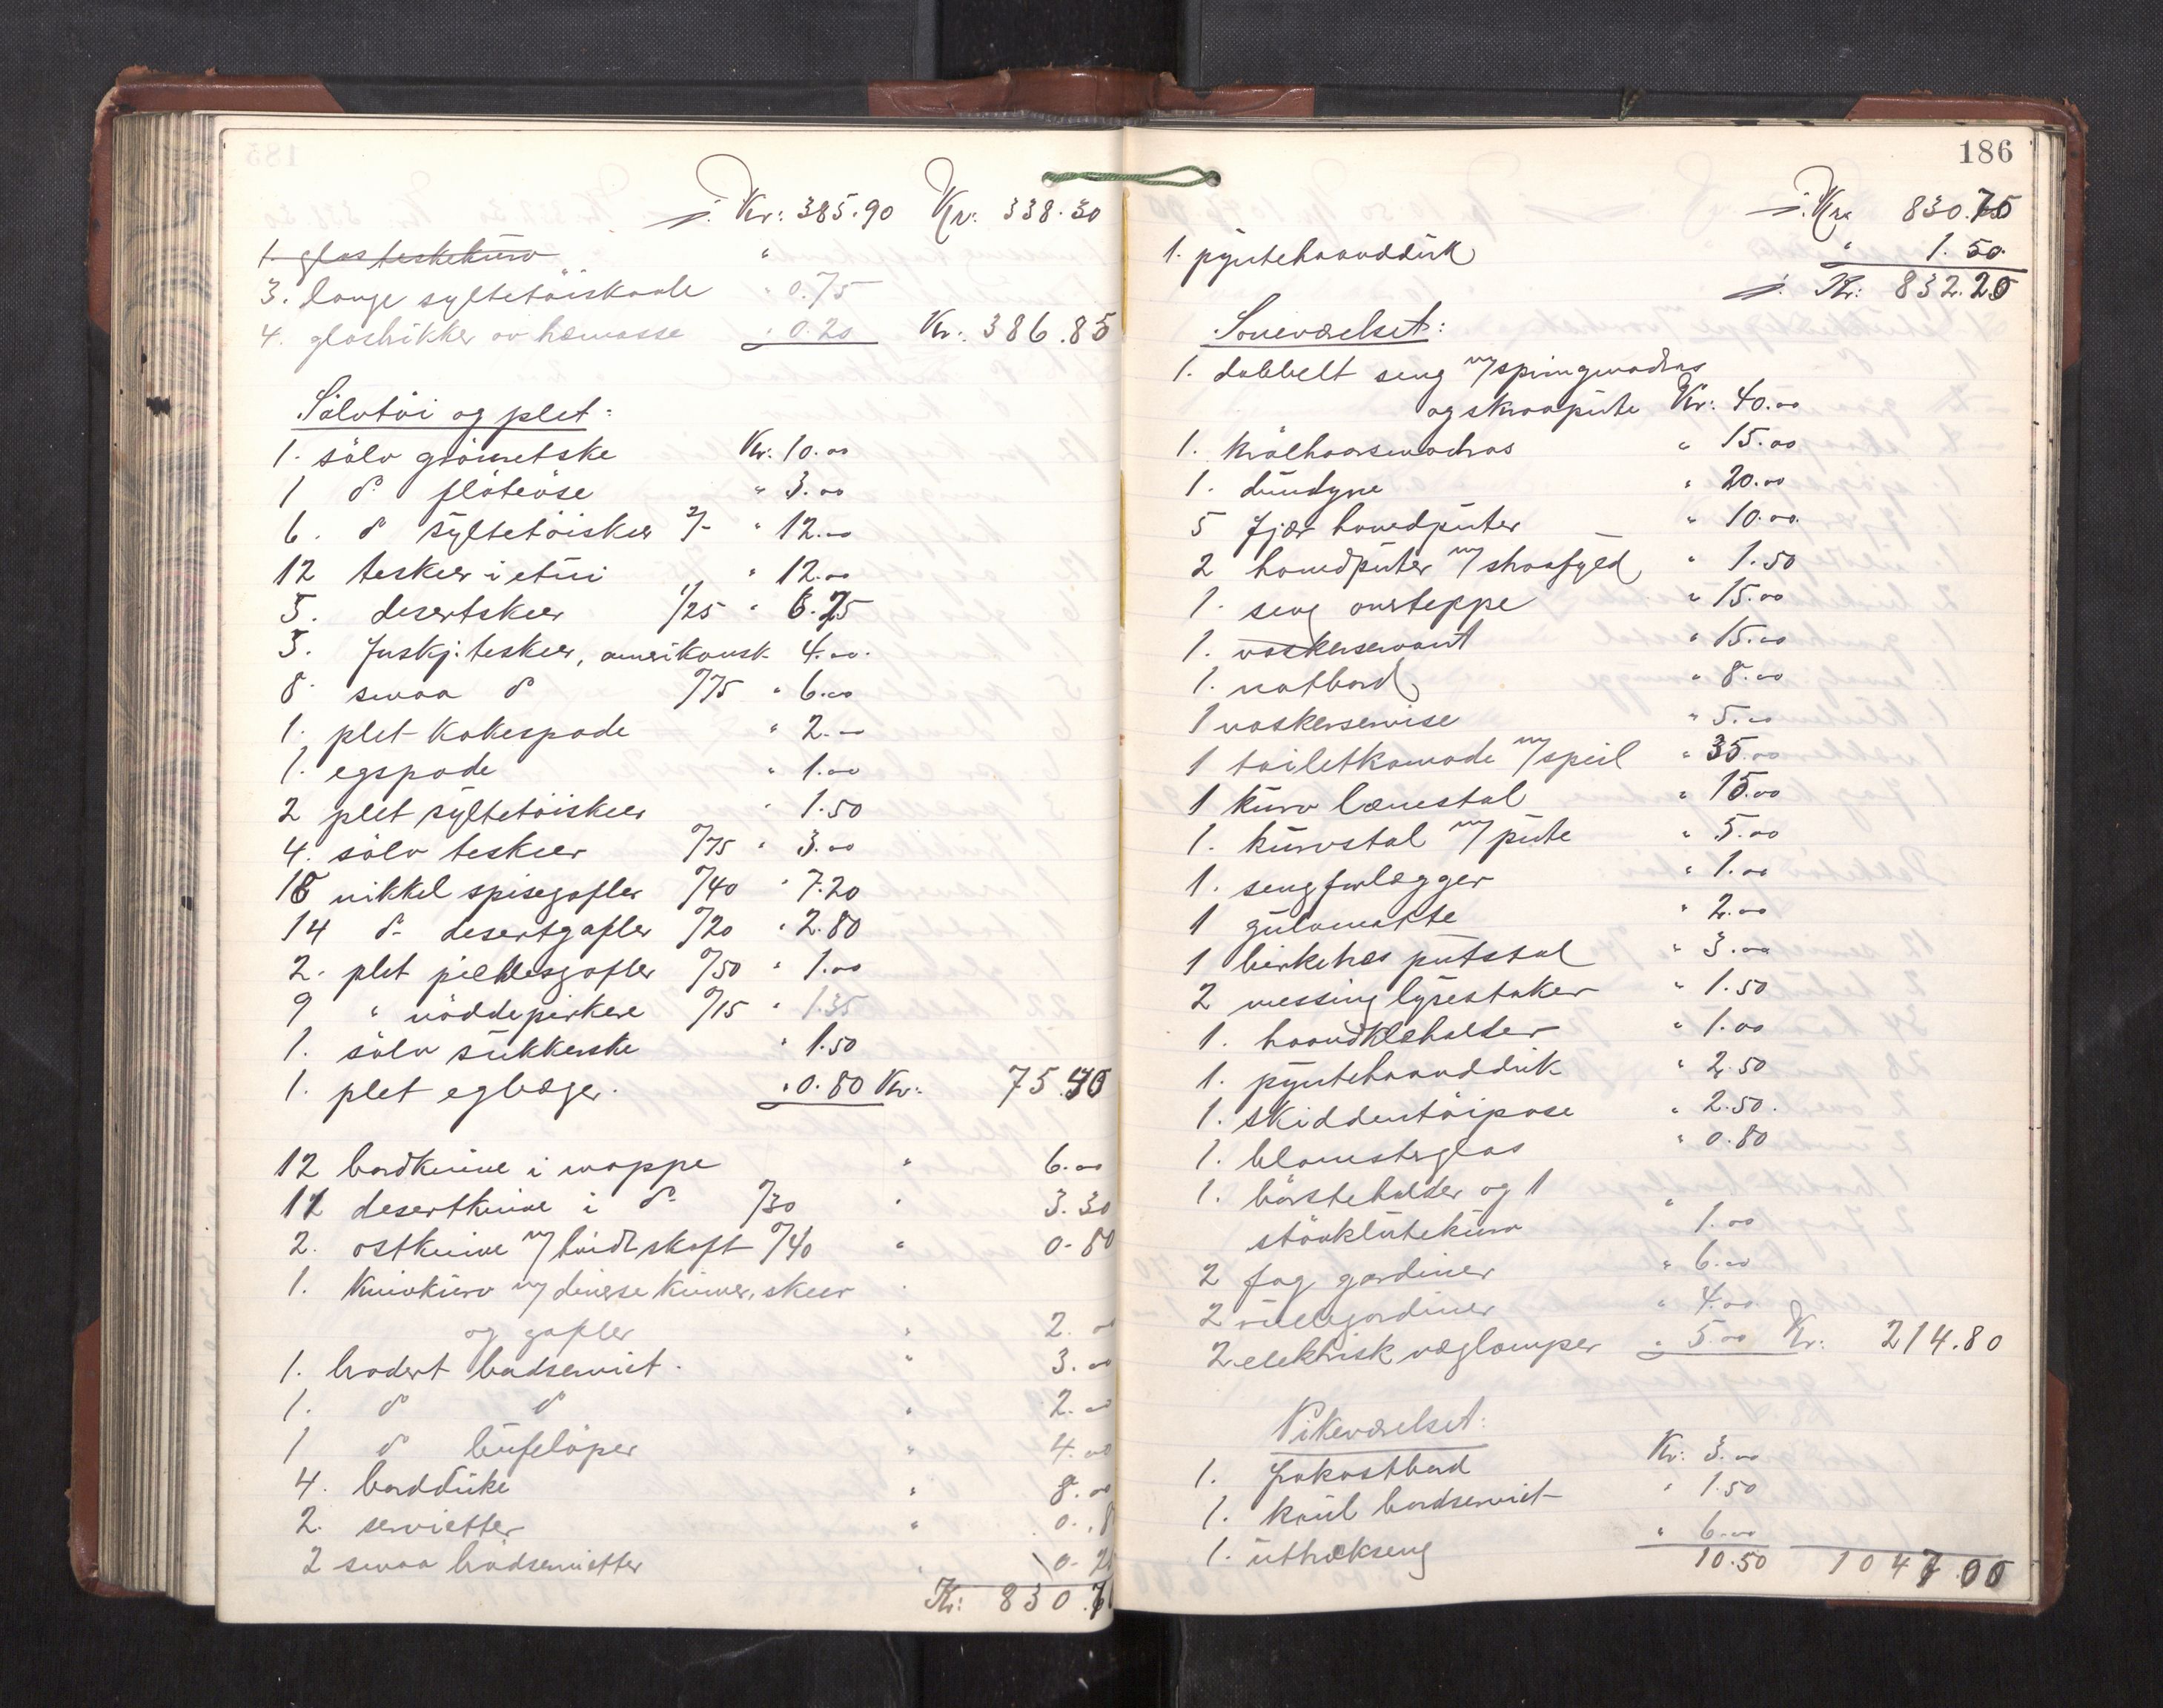 185
/. Kr: 385.90 Kr: 338.30
1. glas teskekurv "
3. lange syltetöiskaale " 0.75
4. glasbrikker av træmasse " 0.20 Kr: 386.85
Sölvtöi og plet:
1. sölv grönnetske Kr. 10.00
1 do flöteöse " 3.00
6. do syltetöiskeer 2/- " 12.00
12 teskeer i etui " 12.00
5. desertskeer 1/25 " 6.25
5. Juskj. teskeer, amerikansk 4.00.
8. smaa do 0/75 " 6.00
1. plet kakespade " 2.00
1. egspade " 1.00
2 plet syltetöiskeer " 1.50
4. sölv teskeer 0/75 " 3.00
18 nikkel spisegafler 0/40 " 7.20
14 do desertgafler 0/20 " 2.80
2. plet pickles gafler 0/50 " 1.00
9 " nöddepirkere 0/15 " 1.35
1. sölv sukkerske " 1.50
1. plet egbæger. " 0.80 Kr: 75.
12 bordknive i mappe " 6.00
11 desertknive i do 0/30 " 3.30
2. ostknive m/ hvidt skaft 0/40 " 0.80
1. knivkurv m/ diverse kniver, skeer "
og gafler " 2.00
1. brodert bordserviet. " 3.00
1. do do " 2.00
1 do bufelöper " 4.00
4. bordduke " 8.00
2. servietter " 0.8
2 smaa brödservietter " 0.2
Kr: 830.7
186
/. Kr. 830.75
1. pyntehaandduk " 1.50
/. Kr: 832.25
Soveværelset:
1. dobbelt seng m/springmadras
og skraapute Kr: 40.00
1. krölhaarsmadras " 15.00
1. dundyne " 20.00
5 fjær hovedputer " 10.00
2 hovedputer m/straafyld " 1.50
1. seng overteppe " 15.00
1. vaskerservant " 15.00
1. natbord " 8.00
1 vaskerservise " 5.00
1 toiletkomode m/speil " 35.00
1 kurv lænestol " 15.00
1. kurvstol m/pute " 5.00
1. sengforlægger " 1.00
1 gulvmatte " 2.00
1 birketræs putstol " 3.00
2 messing lysestaker " 1.50
1. haandklæholder " 1.00
1. pyntehaandduk " 2.50
1. skiddentöipose " 2.50.
1. blomsterglas " 0.80
1. börsteholder og 1
stövklutekurv " 1.00
2 fag gardiner " 6.00
2 rullegardiner " 4.00
2 elektrisk væglamper " 5.00 Kr: 214.80
Pikeværelset:
1. frokostbord Kr: 3.00
1. kaul bordserviet " 1.50
1. uttrækseng " 6.00
10.50 1047.05